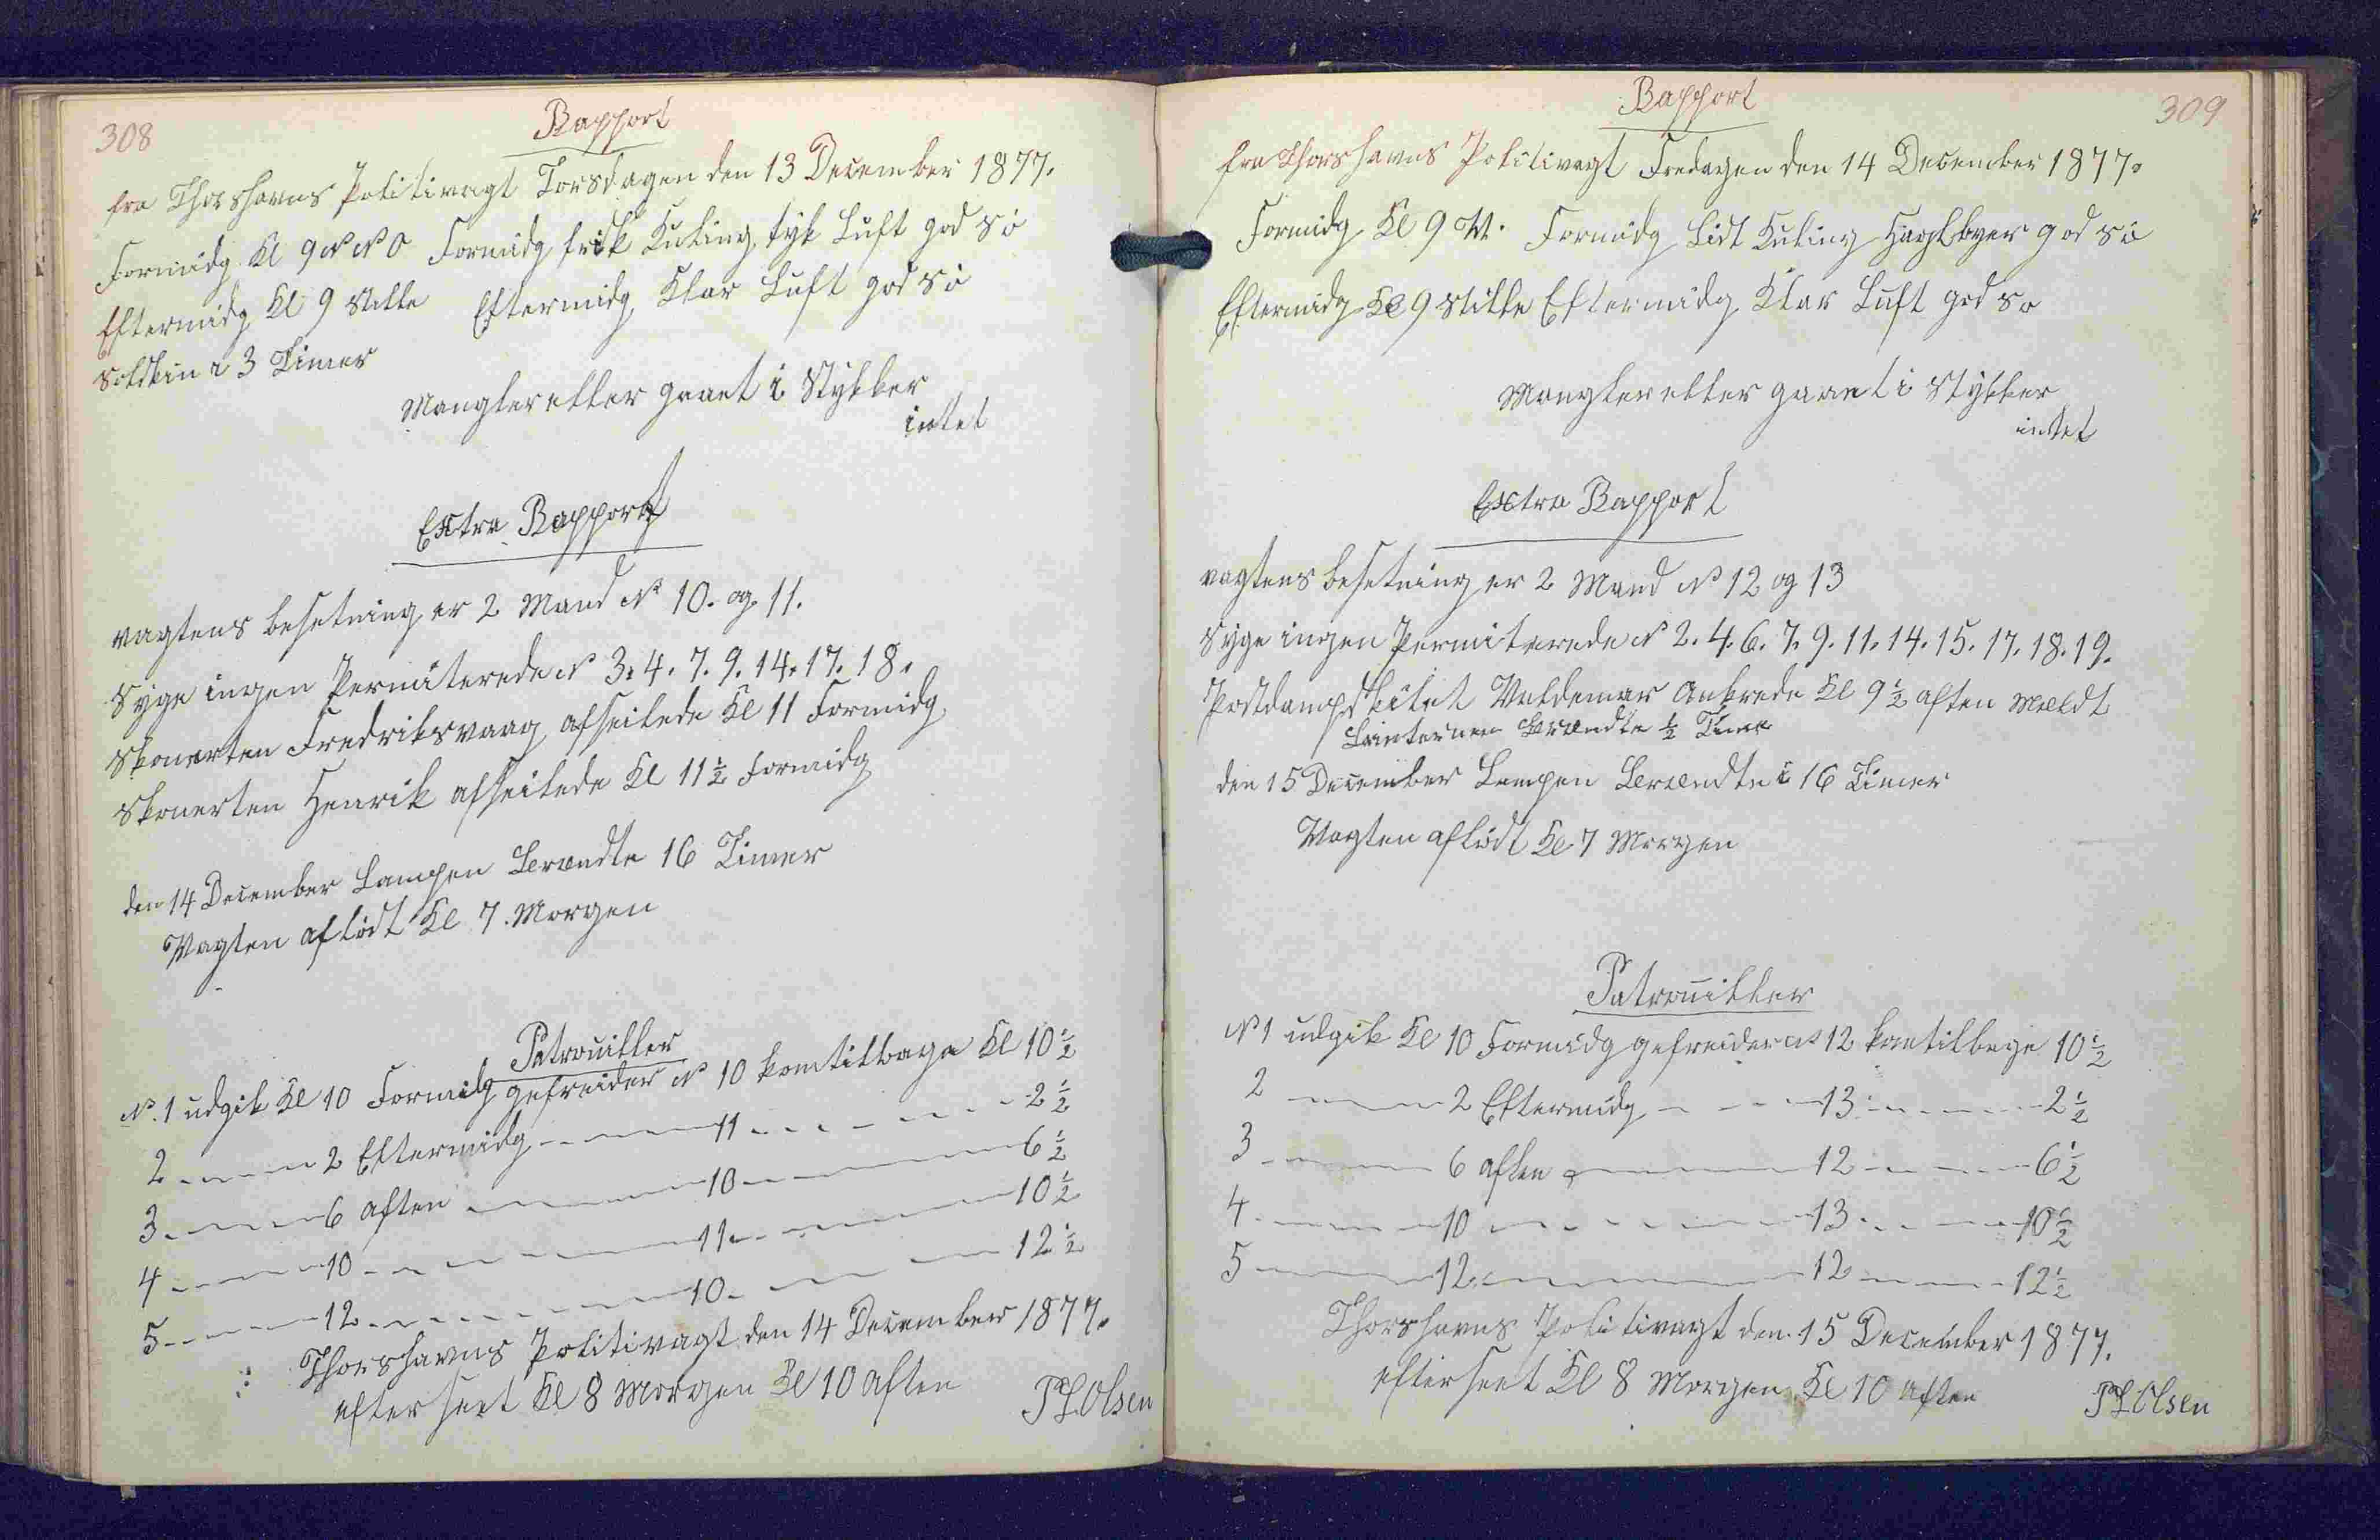 308
Rapport
fra Thorshavns Politivagt Torsdagen den 13 December 1877.
Formidg Kl 9 N N O Formidg frisk Kuling tyk Luft god Sö
Eftermidg Kl 9 Stille Eftermidg Klar Luft god Sö
Solskin i 3 Timer
Mangler eller gaaet i Stykker
intet
Extra Rapport
vagtens besetning er 2 Mand No 10. og 11.
Syge ingen Permiterede No 3. 4. 7. 9. 14. 17. 18.
Skonerten Fredriksvaag afseilede Kl 11 Formidg
Skonerten Henrik afseilede Kl 11 1/2 Formidg
den 14 December Lampen Brændte 16 Timer
Vagten aflöst Kl 7. Morgen
Patrouiller
No. 1 udgik Kl 10 Formidg gefreider No 10 kom tilbage Kl 10 1/2
2 - - - - 2 Eftermidg - - - - 11 - - - - 2 1/2
3 - - - - 6 aften - - - - 10 - - - - 6 1/2
4 - - - - 10 - - - - 11 - - - - 10 1/2
5 - - - - 12 - - - - 10 - - - - 12 1/2
Thorshavns Politivagt den 14 December 1877.
efterseet Kl 8 Morgen Kl 10 Aften
Olsen
309
Rapport
fra Thorshavns Politivagt Fredagen den 14 December 1877.
Formidg Kl 9 V. Formidg Lidt Kuling Haglbyer god Sö
Eftermidg Kl 9 Stille Eftermidg Klar Luft god So
Mangler eller gaaet i Stykker
intet
Extra Rapport
vagtens besetning er 2 Mand No 12 og 13
Syge ingen Permiterede No 2. 4. 6. 7. 9. 11. 14. 15. 17. 18. 19.
Postdampskibet Valdemar Ankrede Kl 9 1/2 aften Meldt
Lainternen Brændte 1/2 Time
den 15 December Lampen Brændte i 16 Timer
Vagten aflöst Kl 7 Morgen
Patrouiller
No 1 udgik Kl 10 Formidg gefreider No 12 kom tilbage 10 1/2
2 - - - - 2 Eftermidg - - - - 13 - - - - 2 1/2
3 - - - - 6 aften - - - - 12 - - - - 6 1/2
4 - - - - 10 - - - - 13 - - - - 10 1/2
5 - - - - 12 - - - - 12 - - - - 12 1/2
Thorshavns Politivagt den 15 December 1877.
efterseet Kl 8 Morgen Kl 10 Aften
Olsen